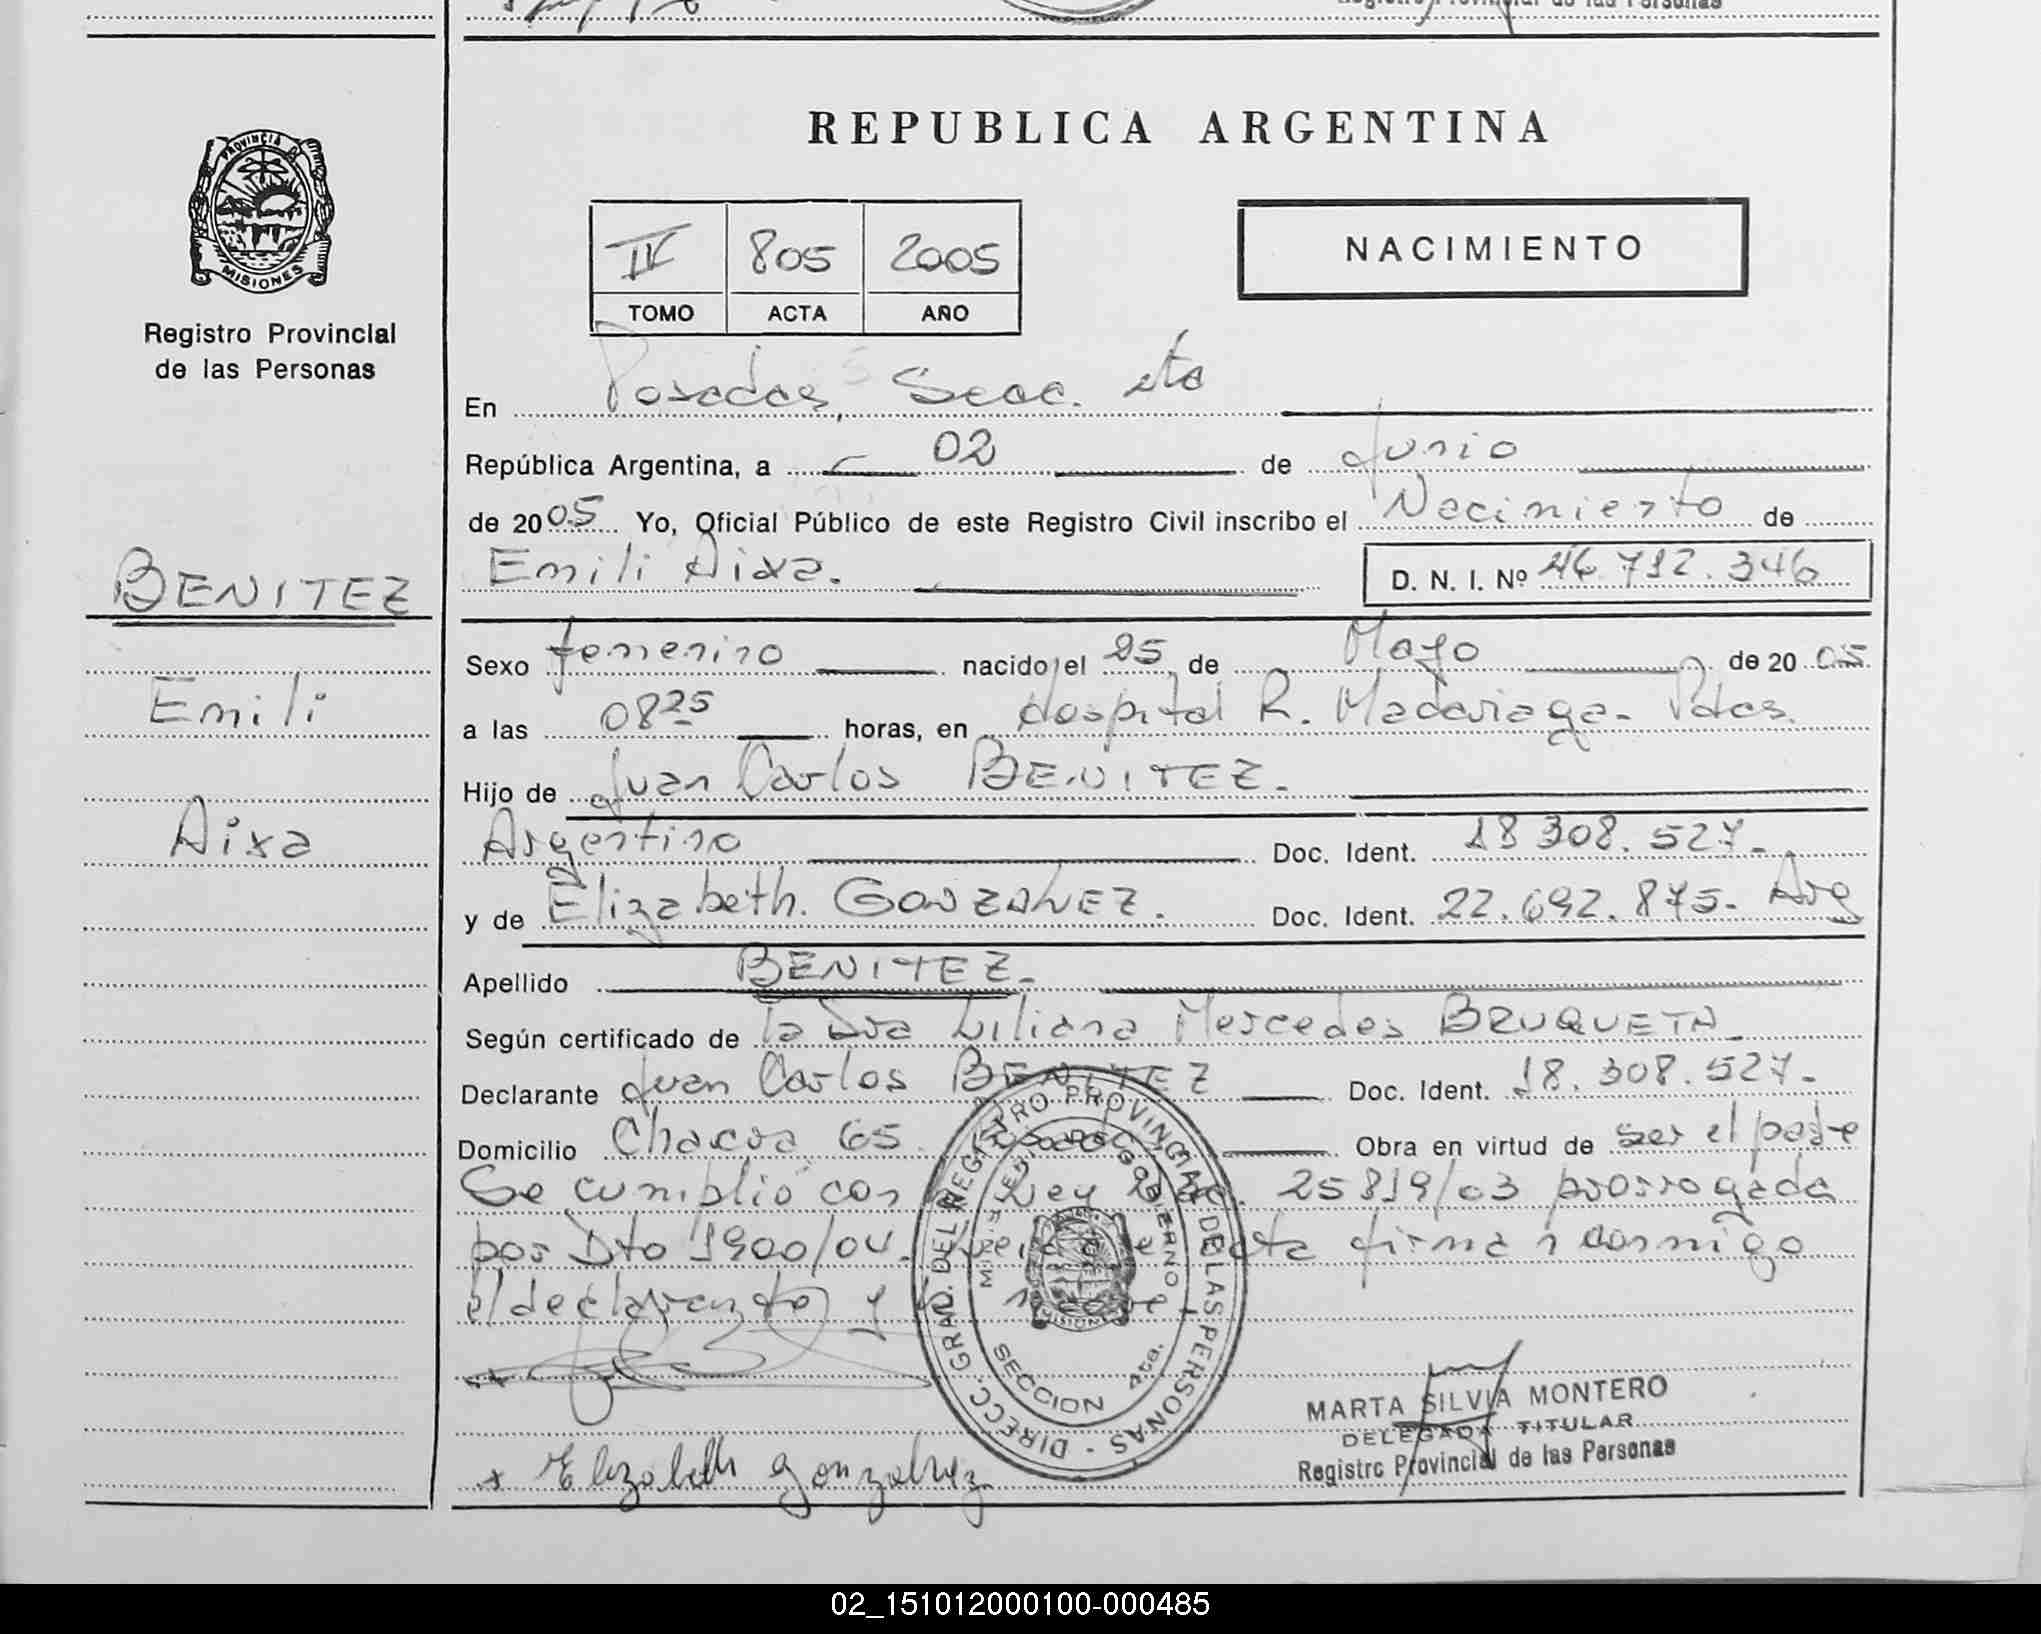 REPUBLICA ARGENTINA
PROVINCIA DE
MISIONES
Registro Provincial
de las Personas
IV 805 2005
TOMO ACTA AÑO
NACIMIENTO
En Posadas, Secc. 4ta
República Argentina, a 02 de Junio
de 2005 Yo, Oficial Público de este Registro Civil inscribo el Nacimiento de
Emili Aixa. D. N. I. Nº 46.712.346
BENITEZ
Emili
Aixa
Sexo femenino nacido el 25 de Mayo de 2005
a las 08 25 horas, en Hospital R. Madariaga - Pdas.
Hijo de Juan Carlos BENITEZ.
Argentino Doc. Ident. 18 308.527-
y de Elizabeth. GONZALEZ. Doc. Ident. 22.692.875- Arg
Apellido BENITEZ-
Según certificado de la Dra Liliana Mercedes BRUQUETA
Declarante Juan Carlos BENITEZ Doc. Ident. 18.308.527-
Domicilio Chacra 65. Posadas Obra en virtud de ser el padre
Se cumplió con Ley 25819/03 prorrogada
por Dto 1900/04. acta firman conmigo
el declarante y
DIRECC. GRAL. DEL REGISTRO PROVINCIAL DE LAS PERSONAS -
MINISTERIO DE GOBIERNO
MISIONES
SECCION 4ta.
MARTA SILVIA MONTERO
DELEGADA TITULAR
Registro Provincial de las Personas
x Elizabeth Gonzalez
02_151012000100-000485